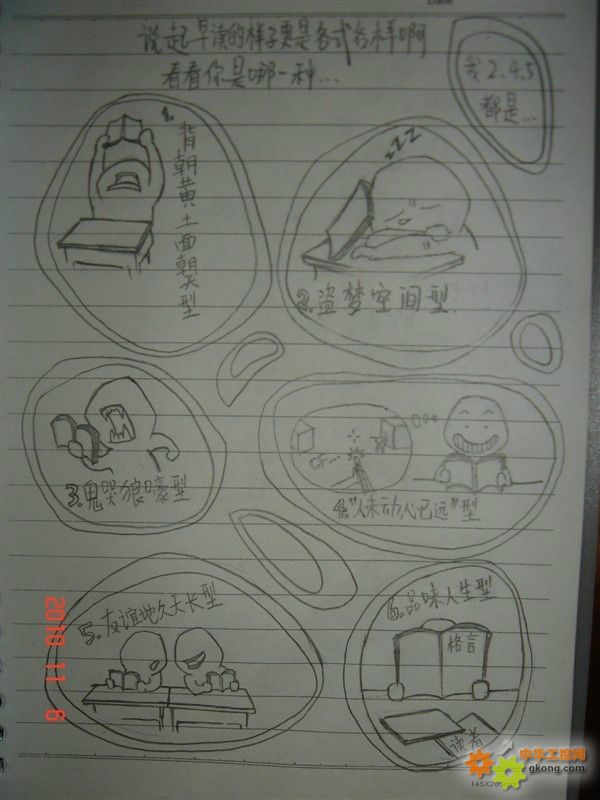 说起早读的样子更是各式各样啊
看看你是哪一种...
我2.4.5
都是...
1.
背朝黄土面朝天型
zZZ
2.盗梦空间型
3.鬼哭狼嚎型
CF...
4."人未动心已远"型
5.友谊地久天长型
6.品味人生型
格言
读者
2010 11 6
中华工控网
gkong.com